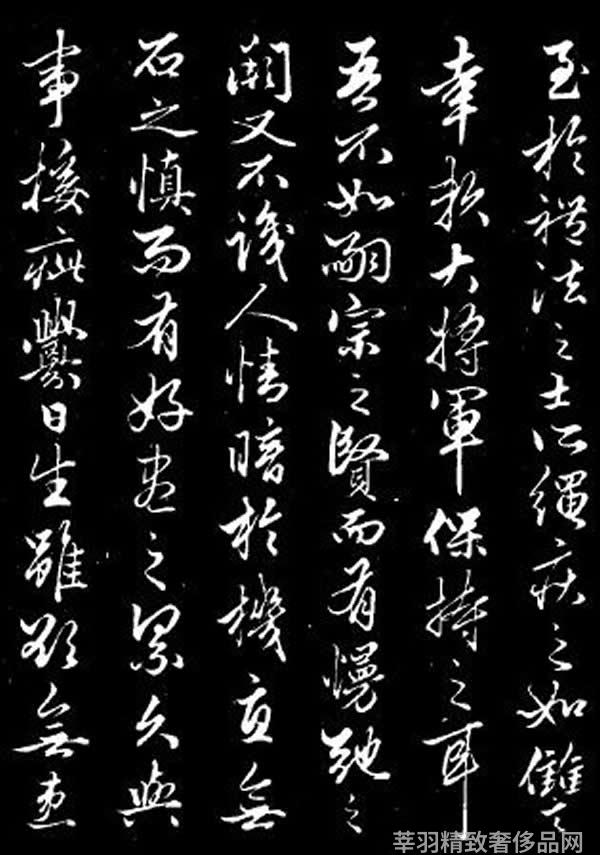 至於禮法之士所繩疾之如讎之
幸賴大將軍保持之耳
吾不如嗣宗之賢而有慢弛之
闕又不識人情暗於機宜無
石之慎而有好盡之累久與
事接疵釁日生雖欲無患
莘羽精致奢侈品网